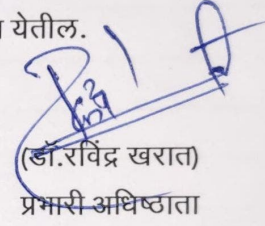 येतील.
(डॉ.रविंद्र खरात)
प्रभारी अधिष्ठाता